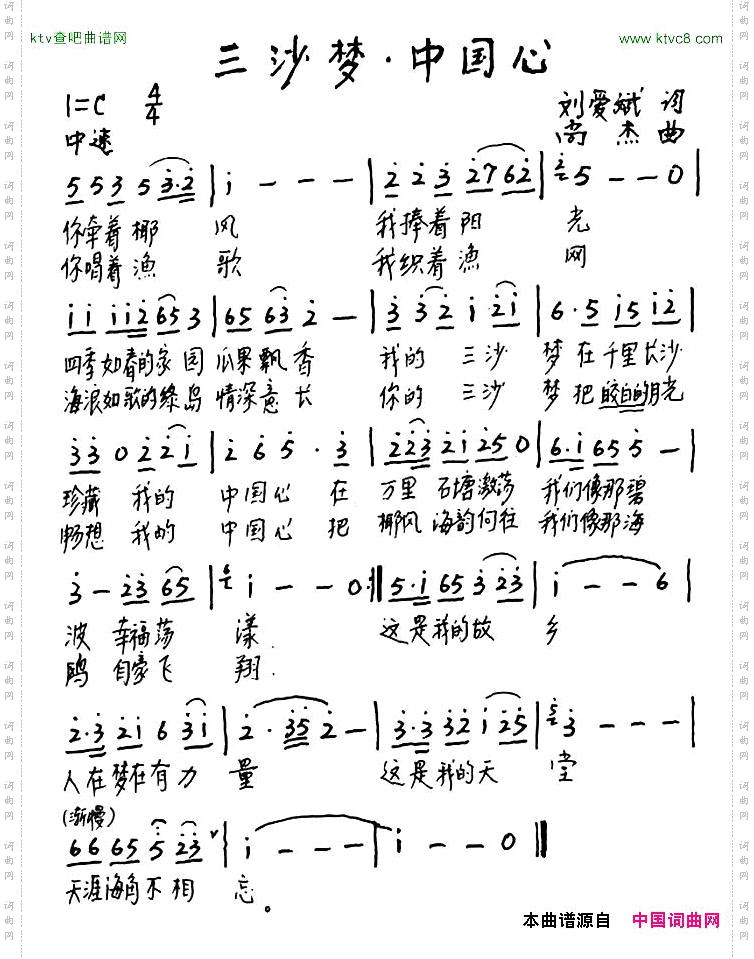 ktv查吧曲谱网 www.ktvc8.com
三沙梦·中国心
1=C 4/4 刘爱斌 词
中速 尚杰 曲
5 5 3 5 3·2 | i - - - | 2 2 3 2 7 6 2 | 5 - - 0 |
你牵着椰 风 我捧着阳 光
你唱着渔 歌 我织着渔 网
i i i i 2 6 5 3 | 6 5 6 3 2 - | 3 3 2 i 2 i | 6·5 i 5 i 2 |
四季如春的家园 瓜果飘香 我的 三沙 梦 在千里长沙
海浪如歌的绿岛 情深意长 你的 三沙 梦 把皎白的月光
3 3 0 2 2 i | 2 6 5 · 3 | 2 2 3 2 i 2 5 0 | 6·i 6 5 5 - |
珍藏 我的 中国心 在 万里 石塘激荡 我们像那碧
畅想 我的 中国心 把 椰风 海韵向往 我们像那海
3 - 2 3 6 5 | i - - 0 :‖ 5·i 6 5 3 2 3 | i - - 6 |
波 幸福荡 漾. 这是我的故 乡
鸥 自豪飞 翔.
2·3 2 i 6 3 i | 2·3 5 2 - | 3·3 3 2 i 2 5 | 3 - - - |
人在梦在有力 量 这是我的天 堂
(渐慢)
6 6 6 5 5 2 3 | i - - - | i - - 0 ‖
天涯海角不相 忘。
本曲谱源自 中国词曲网
词曲网